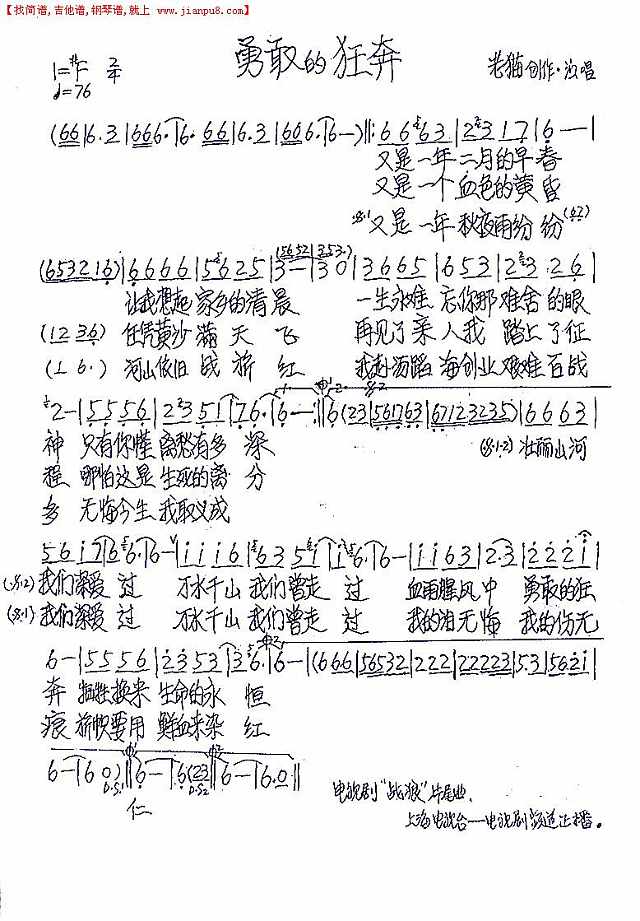 【找简谱,吉他谱,钢琴谱,就上 www.jianpu8.com】
勇敢的狂奔
1=#F 2/4
♩=76
老猫创作·演唱
(66|6.3|666.|6.66|6.3|666.|6—)‖:6663|2317|6——|
又是一年二月的早春
又是一个血色的黄昏
又是一年秋夜雨纷纷
(653216)|6666|5625|3—|30|3665|653|23.26|
让我想起家乡的清晨 一生永难忘你那难舍的眼
(1236) 任凭黄沙满天飞 再见了亲人我踏上了征
(16.) 河山依旧战旗红 我赴汤蹈海创业艰难百战
2—|5556|2351|76.|6—:‖6(23|561763|67123235)|6663|
神 只有你懂离愁有多深 壮丽山河
程 哪怕这是生死的离分
多 无悔今生我取义成
56176|6.6—|1116|6351|1.6|6—|1163|2.3|2221|
我们深爱过 万水千山我们曾走过 血雨腥风中 勇敢的狂
我们深爱过 万水千山我们曾走过 我的泪无悔 我的伤无
6—|5556|2353|36.|6—|(666|56532|222|22223|5.3|5621|
奔 牺牲换来生命的永恒
痕 旗帜要用鲜血来染红
6—|60)‖6—|6(23‖6—|6.0‖
D.S.1 D.S.2
仁
电视剧“战狼”片尾曲,
上海电视台—电视剧频道正播。